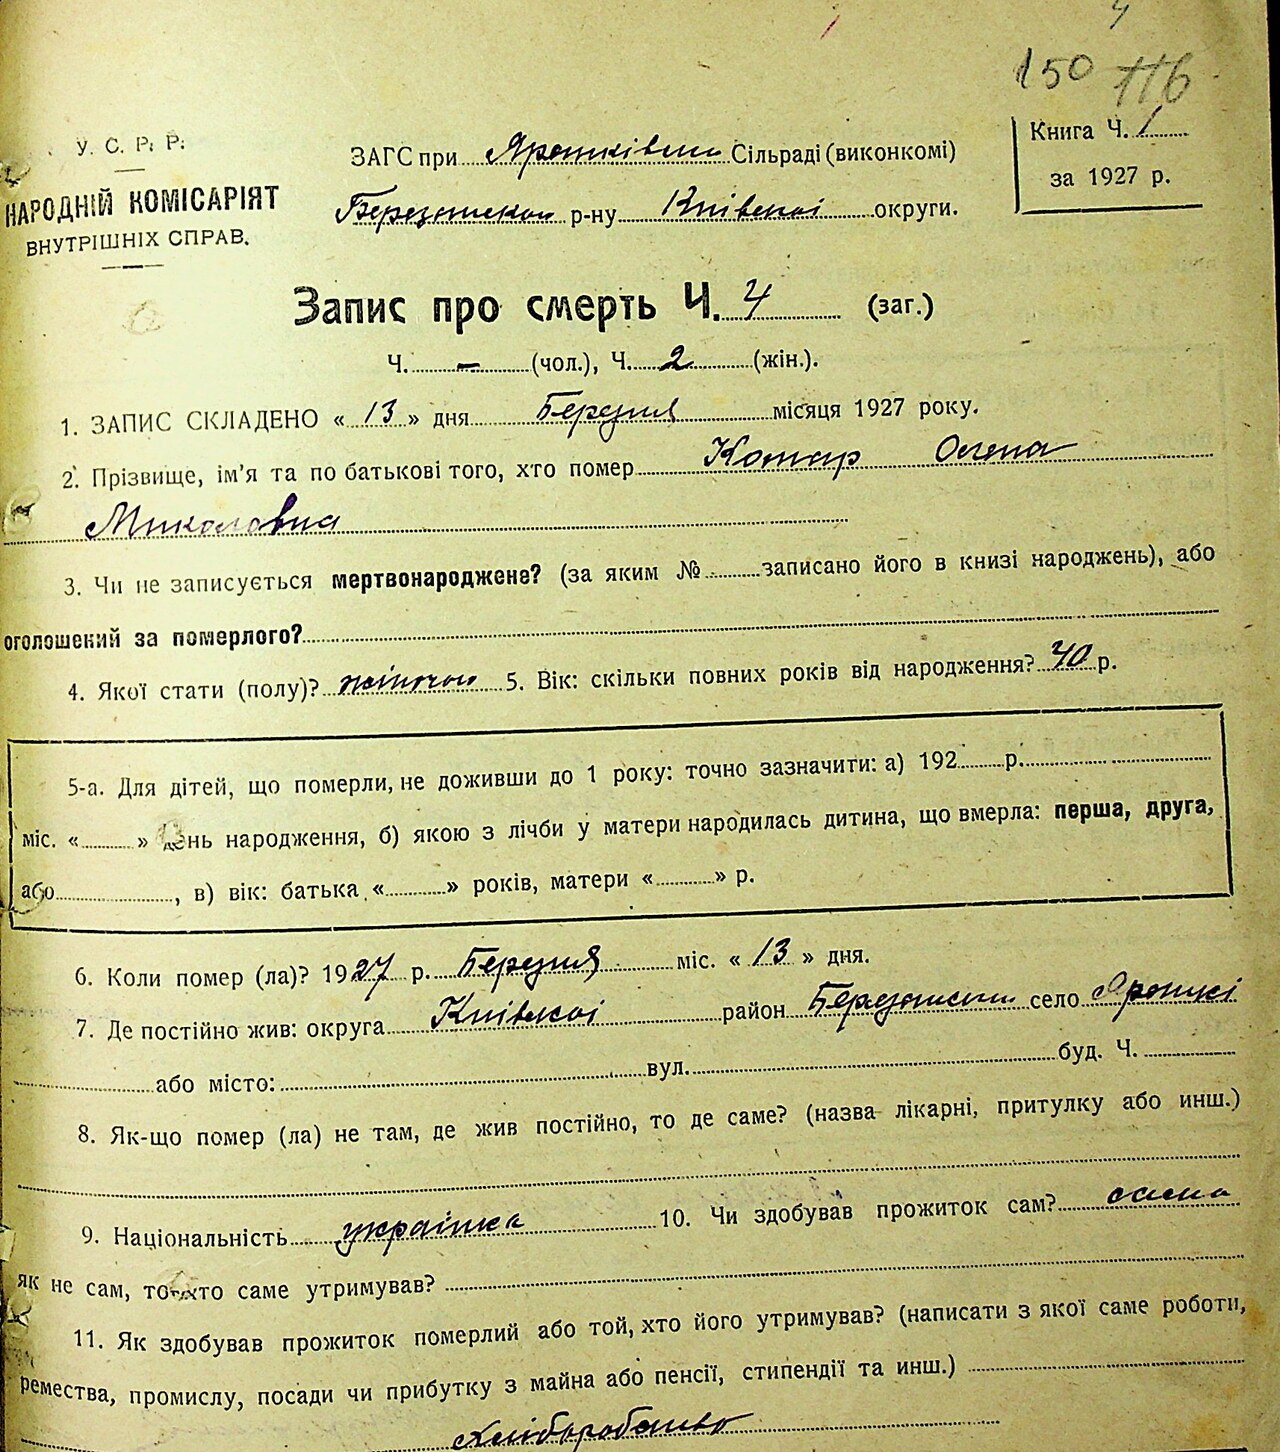 4
150 116
У. С. Р. Р.
НАРОДНІЙ КОМІСАРІЯТ
ВНУТРІШНІХ СПРАВ.
ЗАГС при Ярешківській Сільраді (виконкомі)
р-ну Київської округи.
Книга Ч. 1
за 1927 р.
Запис про смерть Ч. 4 (заг.)
Ч. – (чол.), Ч. 2 (жін.).
1. ЗАПИС СКЛАДЕНО « 13 » дня Березня місяця 1927 року.
2. Прізвище, ім'я та по батькові того, хто помер Комар Олена
Миколовна
3. Чи не записується мертвонароджене? (за яким № записано його в книзі народжень), або
оголошений за померлого?
4. Якої стати (полу)? жіночої 5. Вік: скільки повних років від народження? 40 р.
5-а. Для дітей, що померли, не доживши до 1 року: точно зазначити: а) 192 р.
міс. « » день народження, б) якою з лічби у матери народилась дитина, що вмерла: перша, друга,
або , в) вік: батька « » років, матери « » р.
6. Коли помер (ла)? 1927 р. Березня міс. « 13 » дня.
7. Де постійно жив: округа Київської район село
або місто: вул. буд. Ч.
8. Як-що помер (ла) не там, де жив постійно, то де саме? (назва лікарні, притулку або инш.)
9. Національність українка 10. Чи здобував прожиток сам? сама
як не сам, то хто саме утримував?
11. Як здобував прожиток померлий або той, хто його утримував? (написати з якої саме роботи,
ремества, промислу, посади чи прибутку з майна або пенсії, стипендії та инш.)
Хліборобство